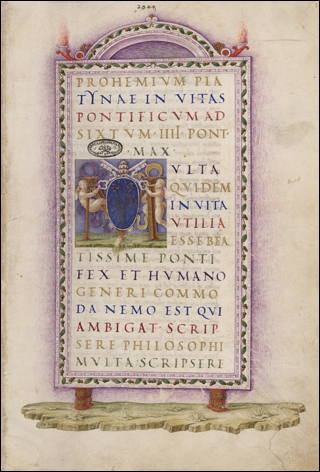 2044
PROHEMIVM PLA
TYNAE IN VITAS
PONTIFICVM AD
SIXTVM IIII PONT·
MAX·
VLTA
QVIDEM
IN VITA
VTILIA
ESSE BEA
TISSIME PONTI
FEX ET HVMANO
GENERI COMMO
DA NEMO EST QVI
AMBIGAT· SCRIP
SERE PHILOSOPHI
MVLTA· SCRIPSERE